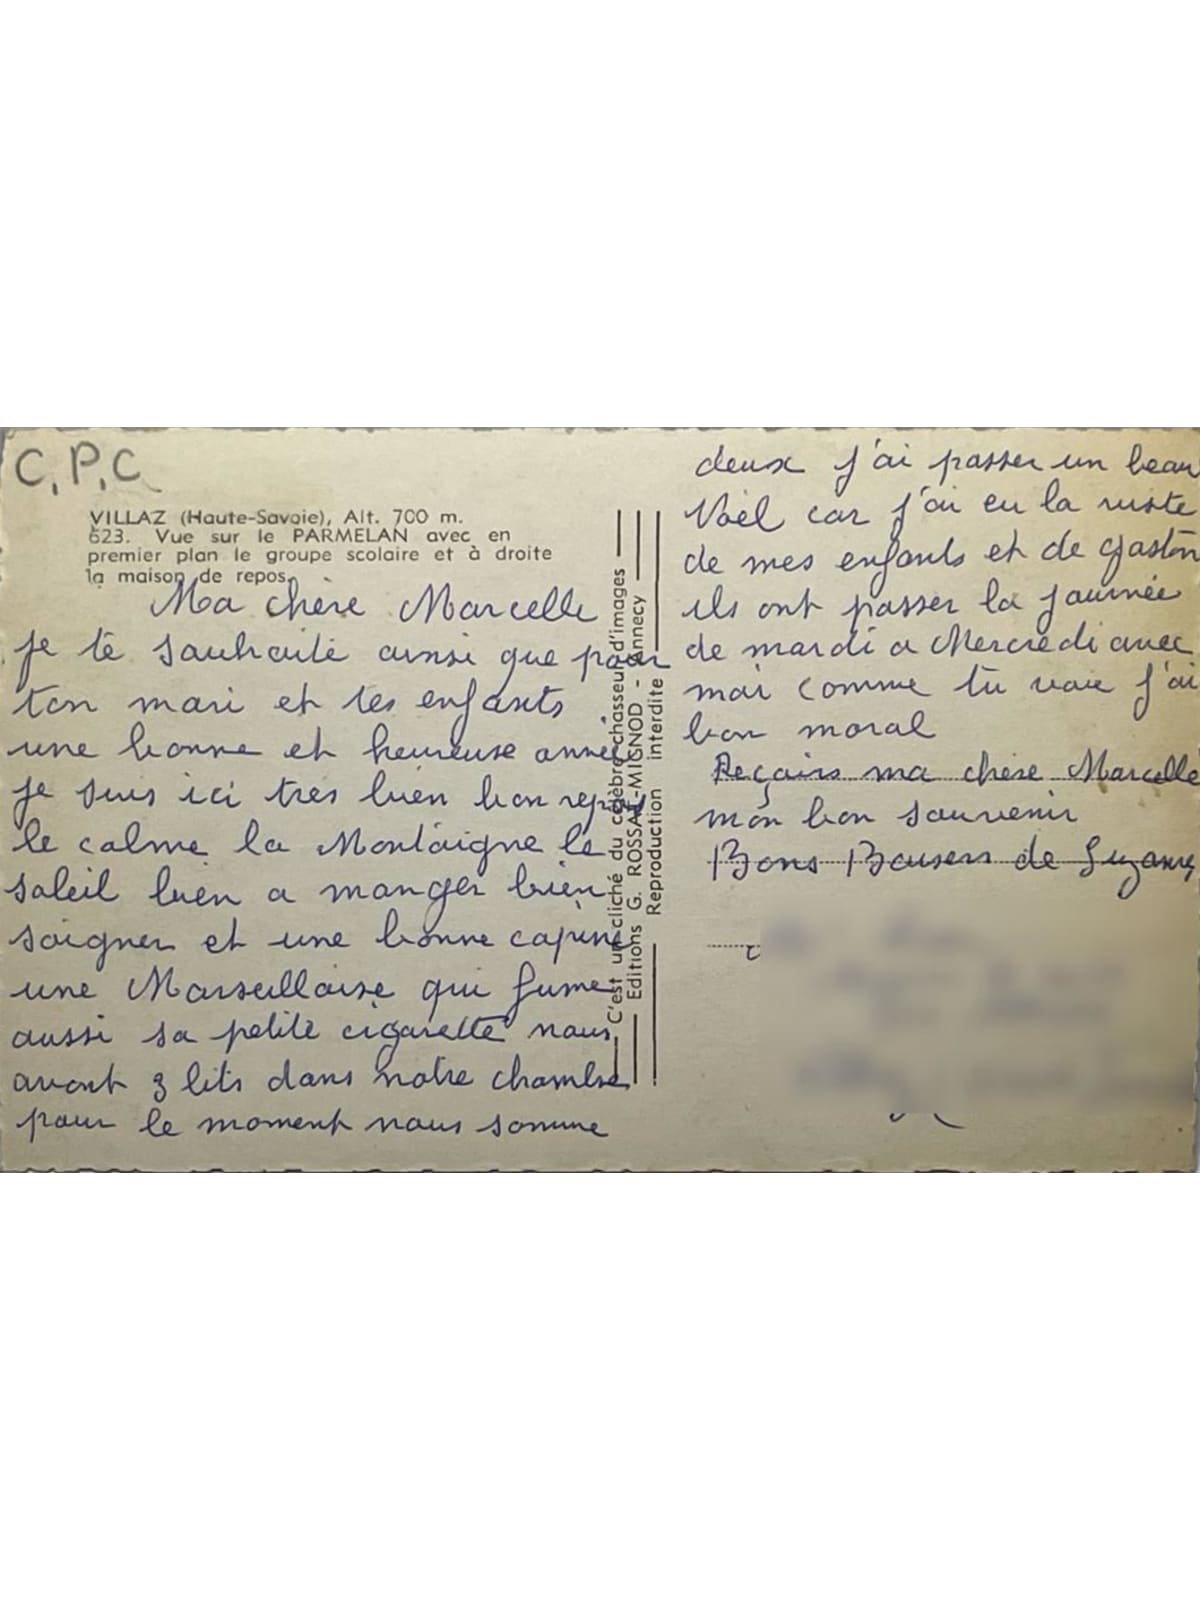 C.P.C
VILLAZ (Haute-Savoie), Alt. 700 m.
623. Vue sur le PARMELAN avec en
premier plan le groupe scolaire et à droite
la maison de repos.
Ma chère Marcelle
je te souhaite ainsi que pour
ton mari et tes enfants
une bonne et heureuse année
je suis ici très bien bon repos
le calme la Montaigne le
soleil bien a manger bien
soigner et une bonne copine
une Marseillaise qui fume
aussi sa petite cigarette nous
avont 3 lits dans notre chambre
pour le moment nous somme
C'est un cliché du célèbre chasseur d'images
Editions G. ROSSAT-MIGNOD - Annecy
Reproduction interdite
deux j'ai passer un beau
Noël car j'ai eu la visite
de mes enfants et de gaston
ils ont passer la journée
de mardi a Mercredi avec
moi comme tu voie j'ai
bon moral
Reçoirs ma chère Marcelle
mon bon souvenir
Bons Baisers de Suzanne